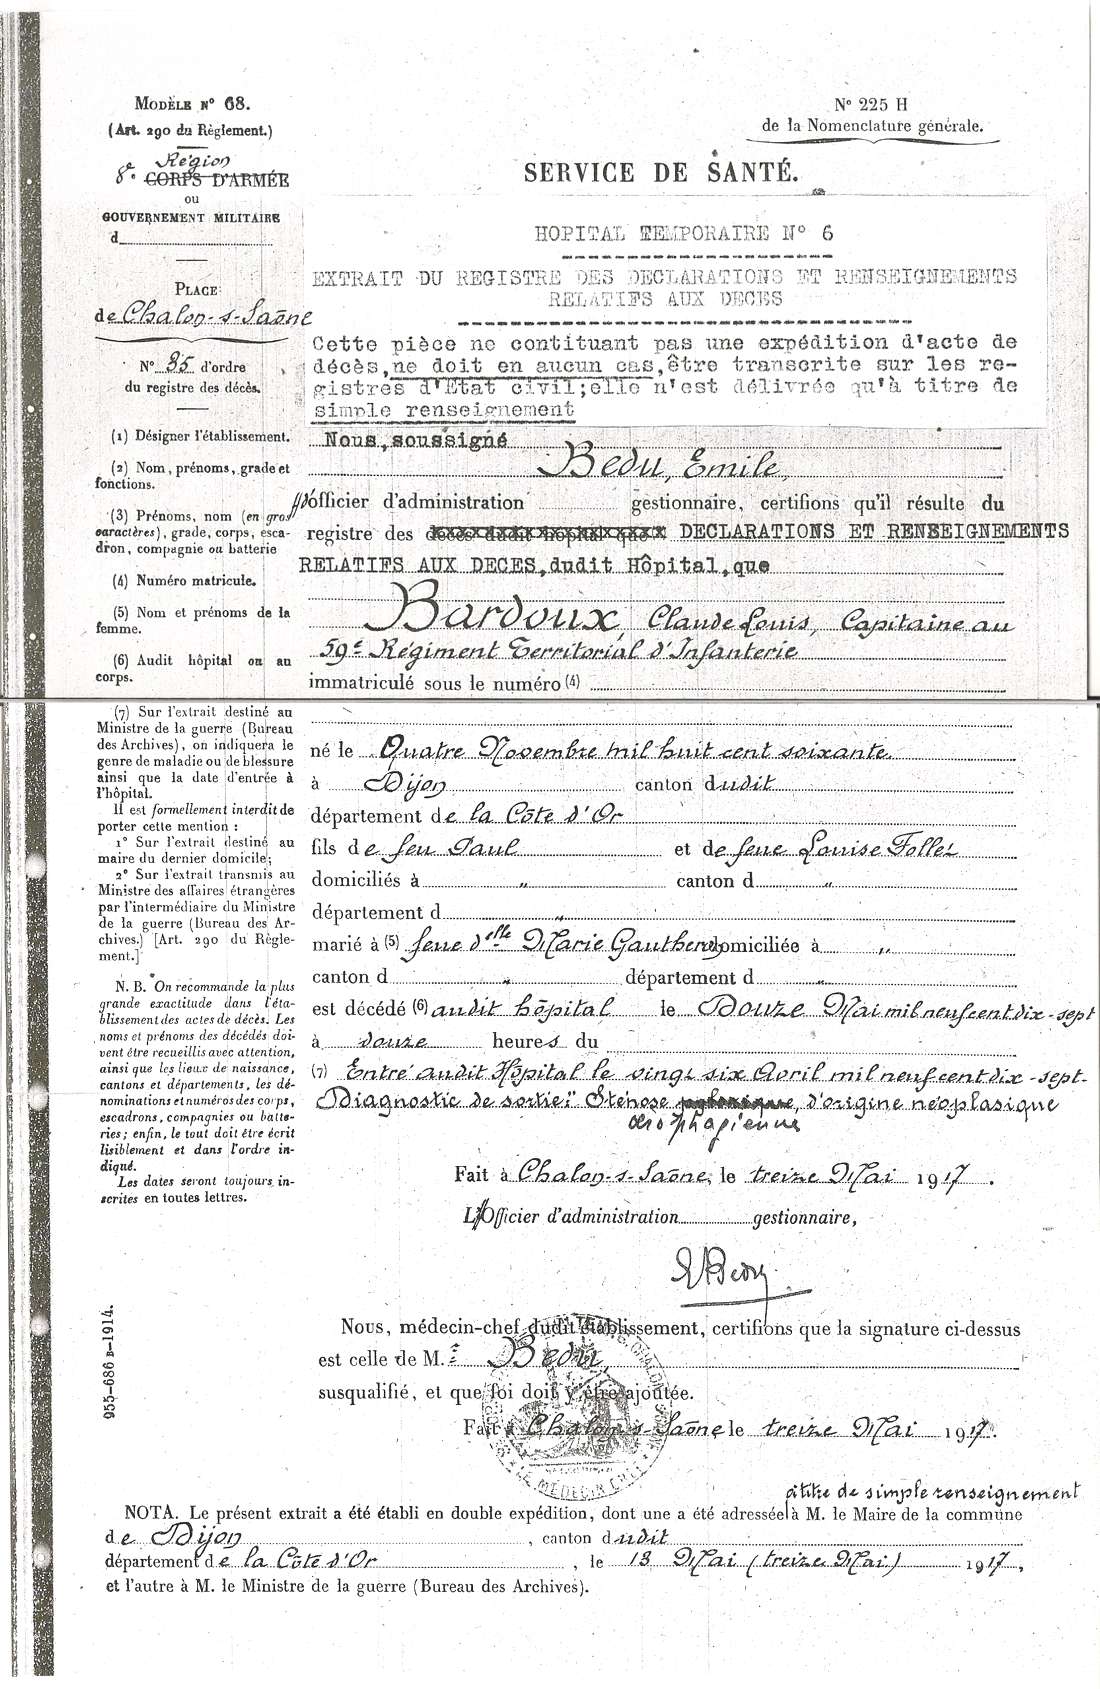 MODÈLE N° 68.
(Art. 290 du Règlement.)
Région
8e. CORPS D'ARMÉE
ou
GOUVERNEMENT MILITAIRE
d
PLACE
de Chalon-s-Saône
N° 35 d'ordre
du registre des décès.
(1) Désigner l'établissement.
(2) Nom, prénoms, grade et
fonctions.
(3) Prénoms, nom (en gros
caractères), grade, corps, esca-
dron, compagnie ou batterie
(4) Numéro matricule.
(5) Nom et prénoms de la
femme.
(6) Audit hôpital ou au
corps.
(7) Sur l'extrait destiné au
Ministre de la guerre (Bureau
des Archives), on indiquera le
genre de maladie ou de blessure
ainsi que la date d'entrée à
l'hôpital.
Il est formellement interdit de
porter cette mention :
1° Sur l'extrait destiné au
maire du dernier domicile;
2° Sur l'extrait transmis au
Ministre des affaires étrangères
par l'intermédiaire du Ministre
de la guerre (Bureau des Ar-
chives.) [Art. 290 du Règle-
ment.]
N. B. On recommande la plus
grande exactitude dans l'éta-
blissement des actes de décès. Les
noms et prénoms des décédés doi-
vent être recueillis avec attention,
ainsi que les lieux de naissance,
cantons et départements, les dé-
nominations et numéros des corps,
escadrons, compagnies ou batte-
ries; enfin, le tout doit être écrit
lisiblement et dans l'ordre in-
diqué.
Les dates seront toujours in-
scrites en toutes lettres.
955-686 B-1914.
N° 225 H
de la Nomenclature générale.
SERVICE DE SANTÉ.
HOPITAL TEMPORAIRE N° 6
EXTRAIT DU REGISTRE DES DECLARATIONS ET RENSEIGNEMENTS
RELATIFS AUX DECES
Cette pièce ne contituant pas une expédition d'acte de
décès, ne doit en aucun cas, être transcrite sur les re-
gistres d'Etat civil; elle n'est délivrée qu'à titre de
simple renseignement
Nous, soussigné
Bedu, Emile,
d'officier d'administration gestionnaire, certifions qu'il résulte du
registre des décès dudit hôpital que DECLARATIONS ET RENSEIGNEMENTS
RELATIFS AUX DECES, dudit Hôpital, que
Bardoux, Claude Louis, Capitaine au
59e Régiment Territorial d'Infanterie
immatriculé sous le numéro (4)
né le Quatre Novembre mil huit cent soixante.
à Dijon canton dudit
département de la Côte d'Or
fils de feu Paul et de feue Louise Follet
domiciliés à " canton d "
département d "
marié à (5) feue delle Marie Gautherey domiciliée à "
canton d " département d "
est décédé (6) audit hôpital le Douze Mai mil neuf cent dix-sept
à douze heures du
(7) Entré audit Hôpital le vingt six Avril mil neuf cent dix-sept-
Diagnostic de sortie: "Sténose pylorique, d'origine néoplasique
œsophagienne
Fait à Chalon-s-Saône, le treize Mai 1917.
L'Officier d'administration gestionnaire,
EBedu
Nous, médecin-chef dudit établissement, certifions que la signature ci-dessus
est celle de M. Bedu,
susqualifié, et que foi doit y être ajoutée.
Fait à Chalon-s-Saône, le treize Mai 1917.
LE MÉDECIN CHEF
à titre de simple renseignement
NOTA. Le présent extrait a été établi en double expédition, dont une a été adressée à M. le Maire de la commune
de Dijon, canton dudit
département de la Côte d'Or, le 13 Mai (treize Mai) 1917,
et l'autre à M. le Ministre de la guerre (Bureau des Archives).